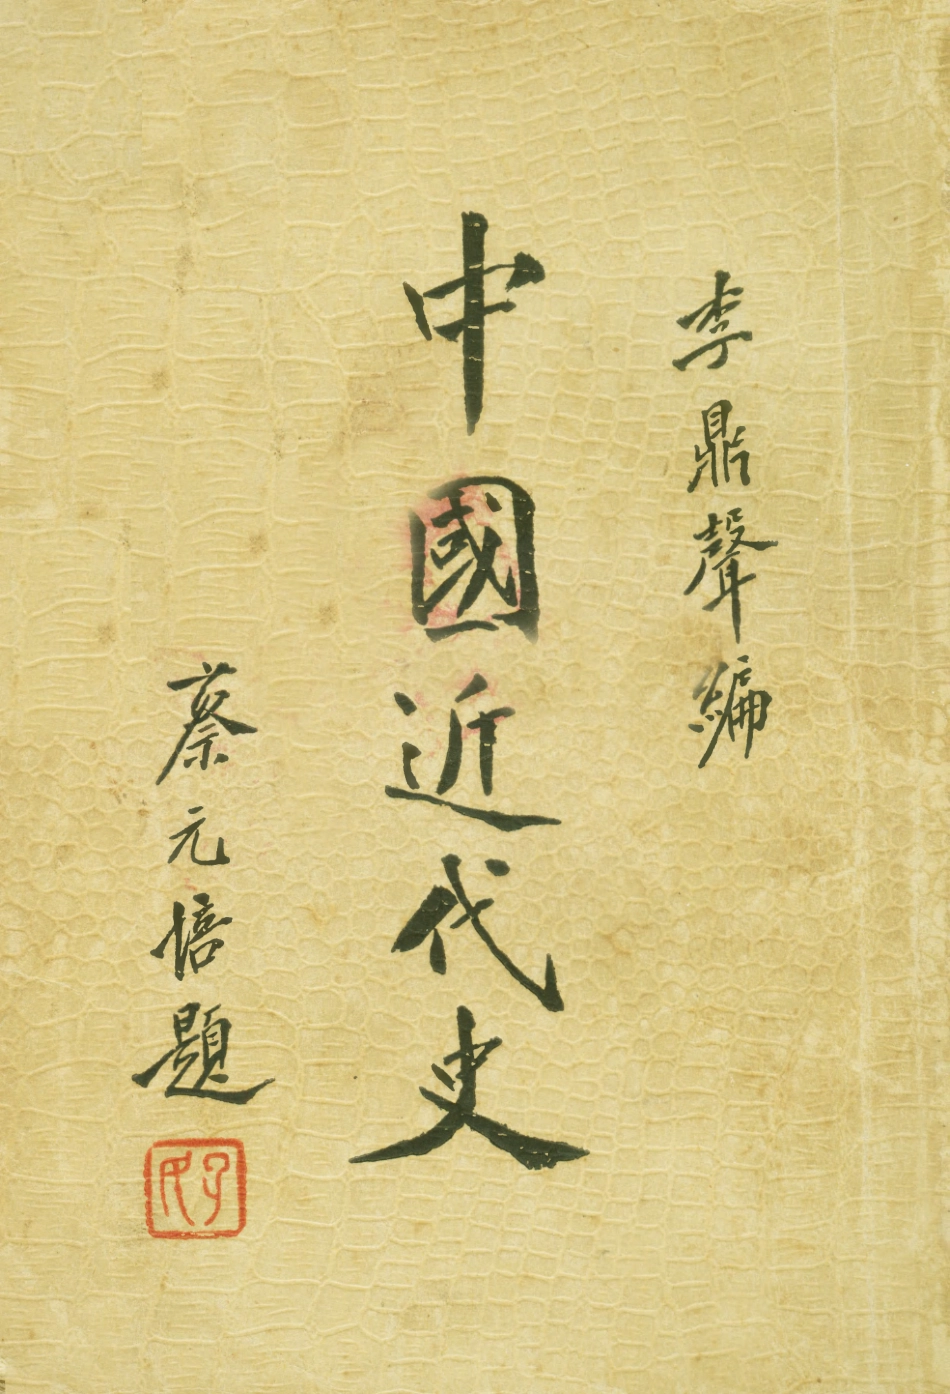 李鼎聲編
中國近代史
蔡元培題
孑民